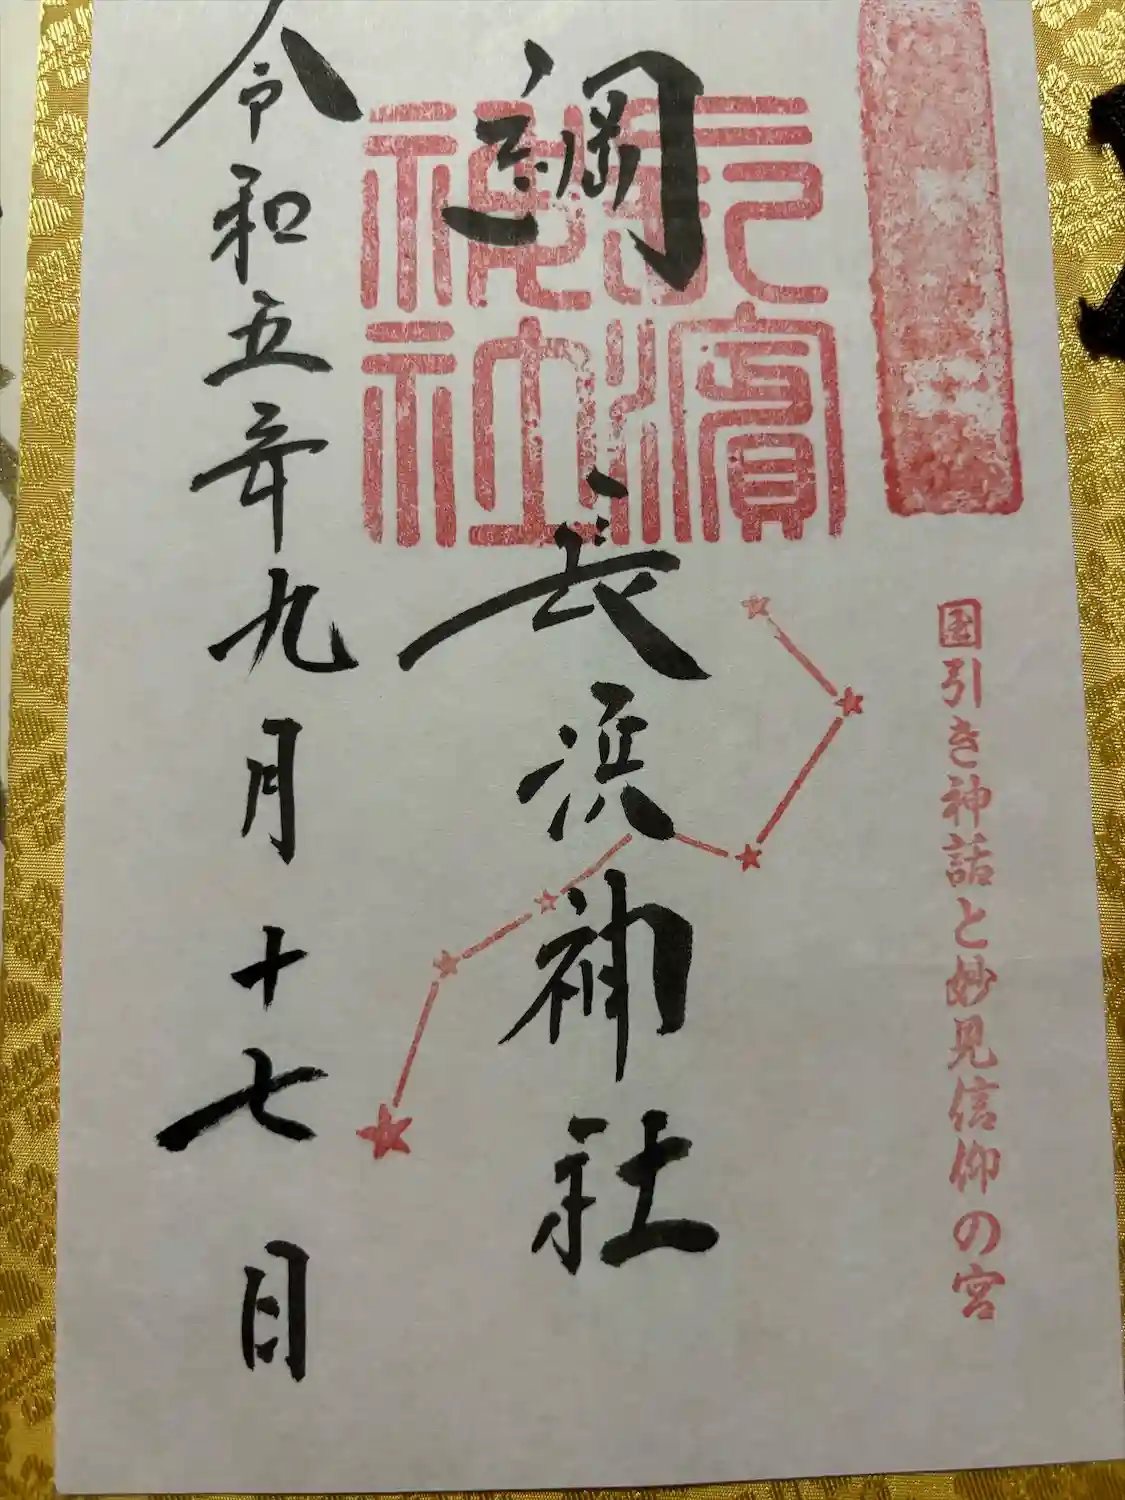 国引き神話と妙見信仰の宮
長濱
神社
長浜神社
令和五年九月十七日